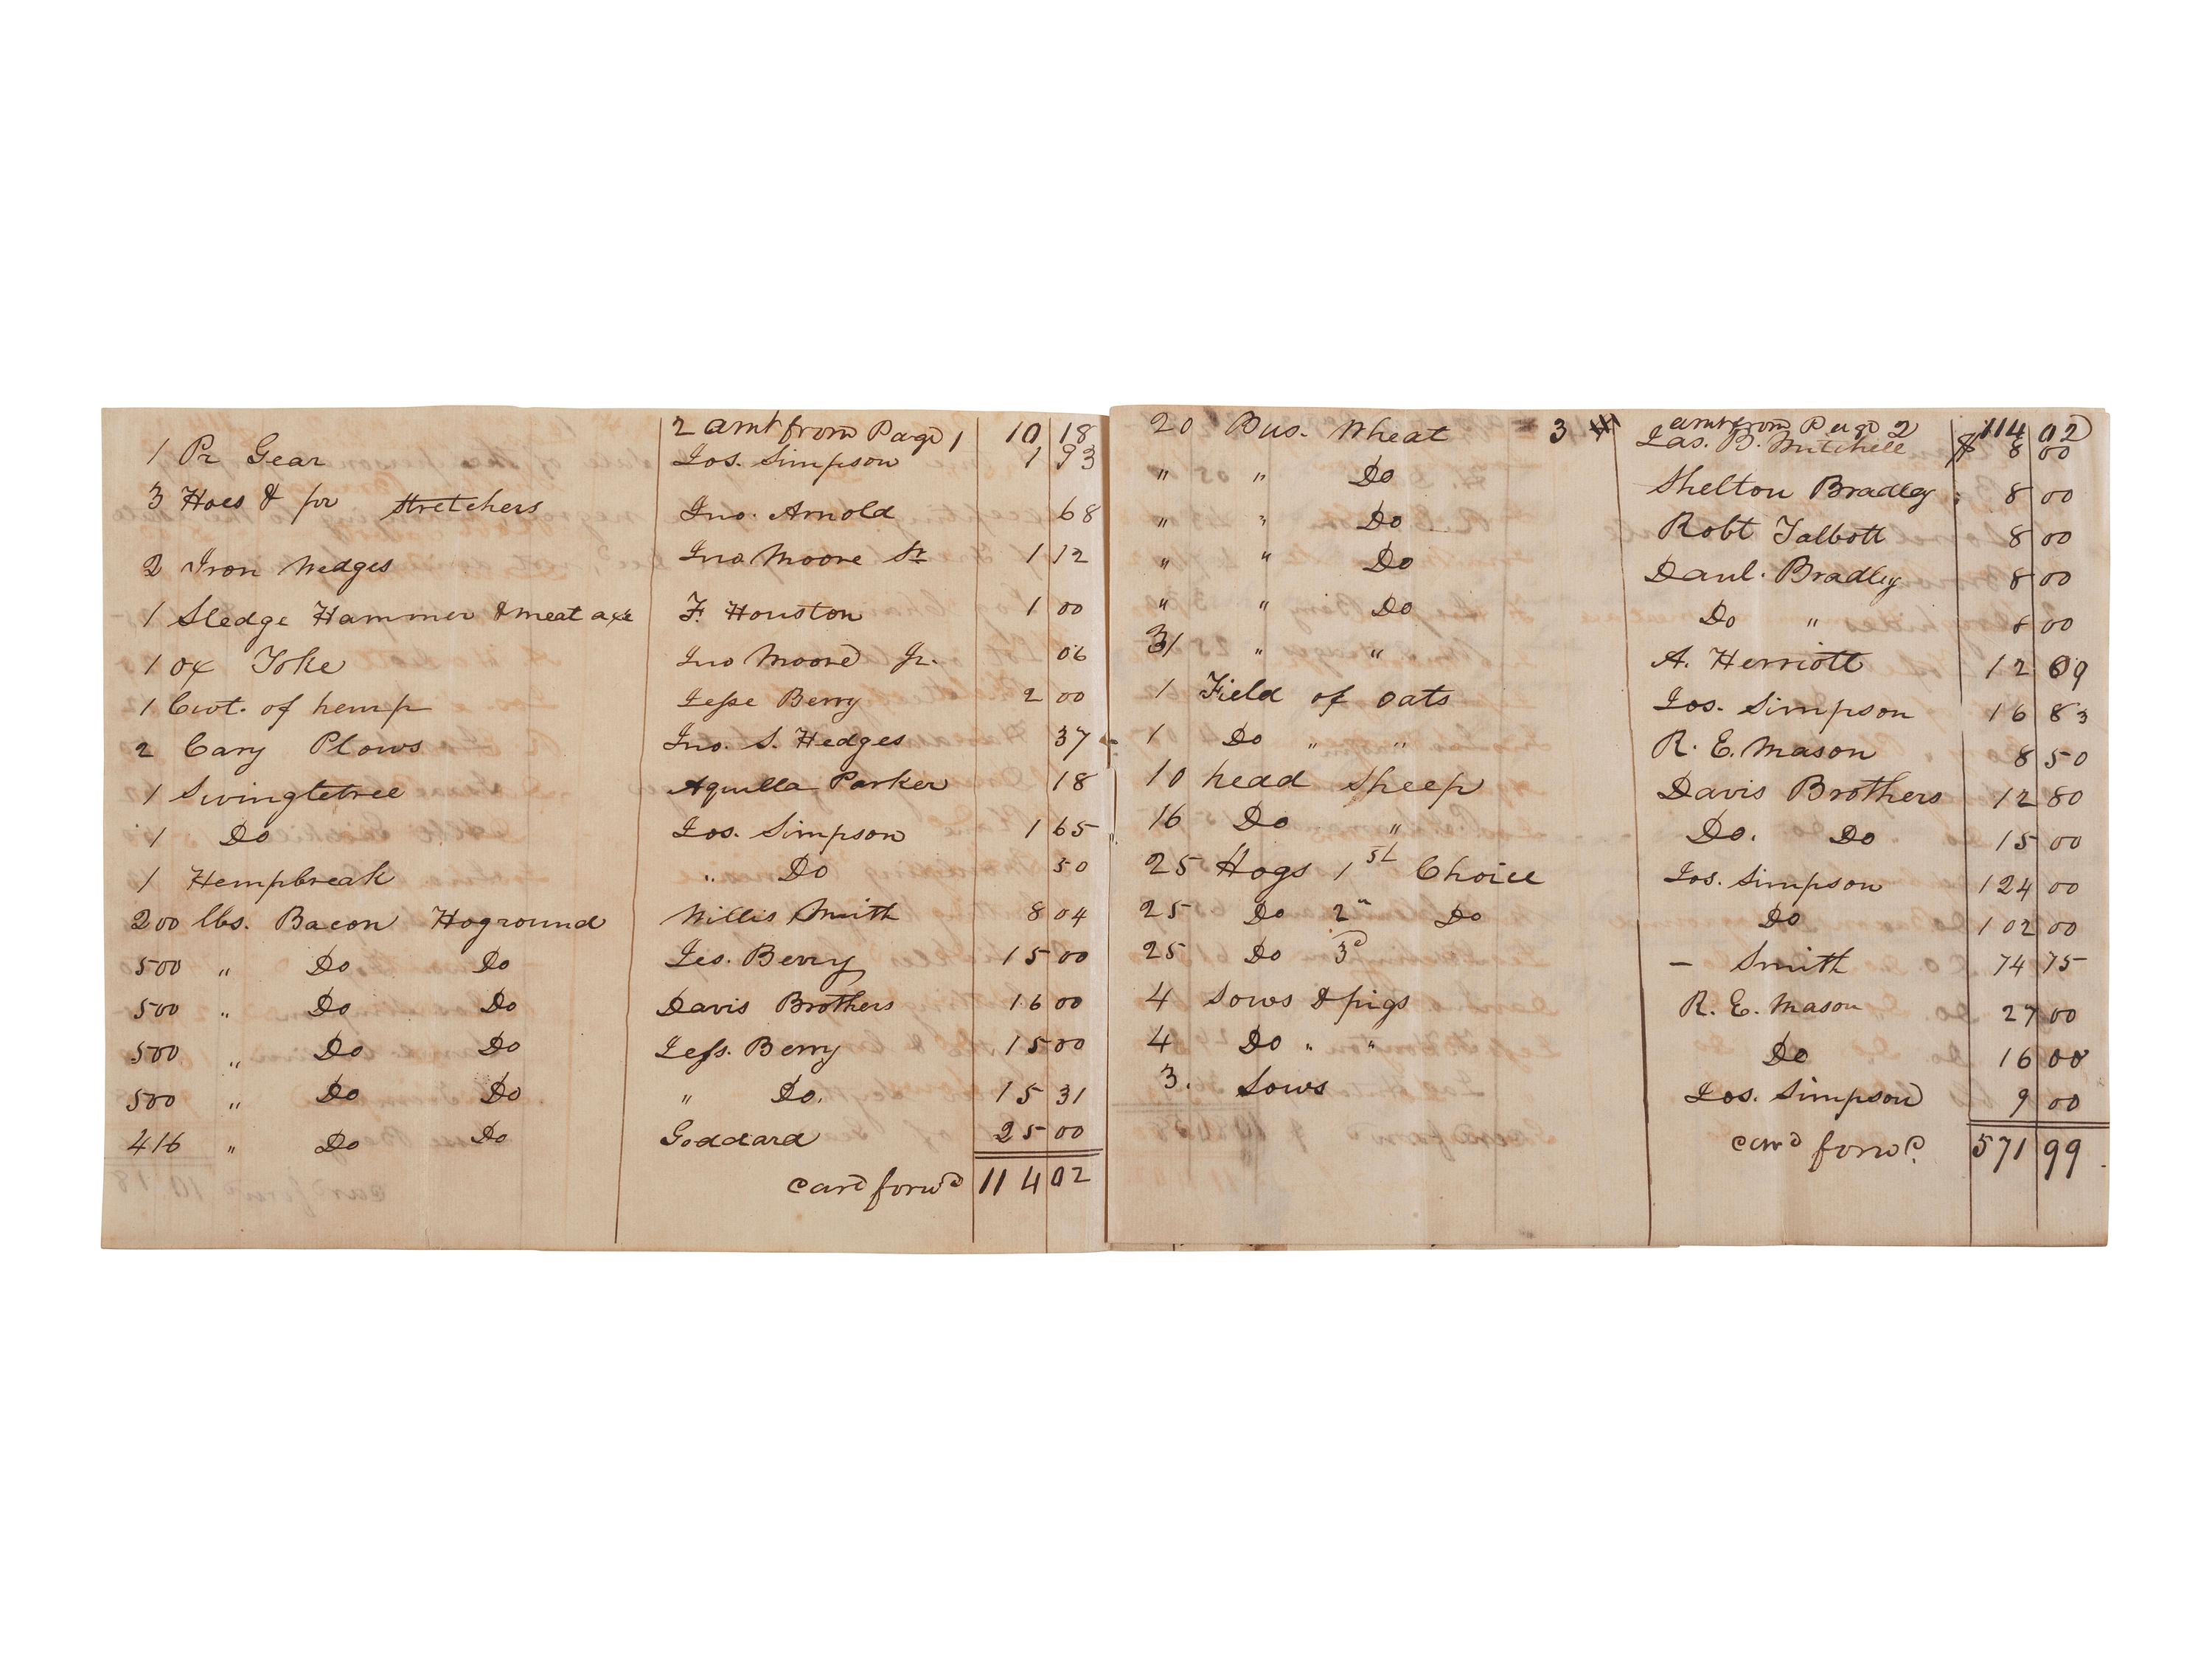 2 amt from Page 1 10 18
1 Pr Gear Jos. Simpson 1 93
3 Hoes & pr Stretchers Jno. Arnold 68
2 Iron Wedges Jno Moore Sr 1 12
1 Sledge Hammer & meat axe F. Houston 1 00
1 ox Yoke Jno Moore Jr. 06
1 Cwt. of hemp Jesse Berry 2 00
2 Cary Plows Jno. S. Hedges 37
1 Swingletree Aquilla Parker 18
1 Do Jos. Simpson 1 65
1 Hempbreak " Do 50
200 lbs. Bacon Hoground Willis Smith 8 04
500 " Do Do Jes. Berry 15 00
500 " Do Do Davis Brothers 16 00
500 " Do Do Jess. Berry 15 00
500 " Do Do " Do. 15 31
416 " Do Do Goddard 25 00
card forwd 114 02
3 amt from Page 2 114 02
20 Bus. Wheat Jas. B. Mitchell $ 8 00
" " Do Shelton Bradley 8 00
" " Do Robt Talbott 8 00
" " Do Danl. Bradley 8 00
" " Do Do " 8 00
31 " " A. Herriott 12 09
1 Field of oats Jos. Simpson 16 83
1 Do " " R. E. Mason 8 50
10 head Sheep Davis Brothers 12 80
16 Do " Do. Do 15 00
25 Hogs 1st Choice Jos. Simpson 124 00
25 Do 2" Do Do 102 00
25 Do 3d — Smith 74 75
4 Sows & pigs R. E. Mason 27 00
4 Do " " Do 16 00
3. Sows Jos. Simpson 9 00
card forwd. 571 99